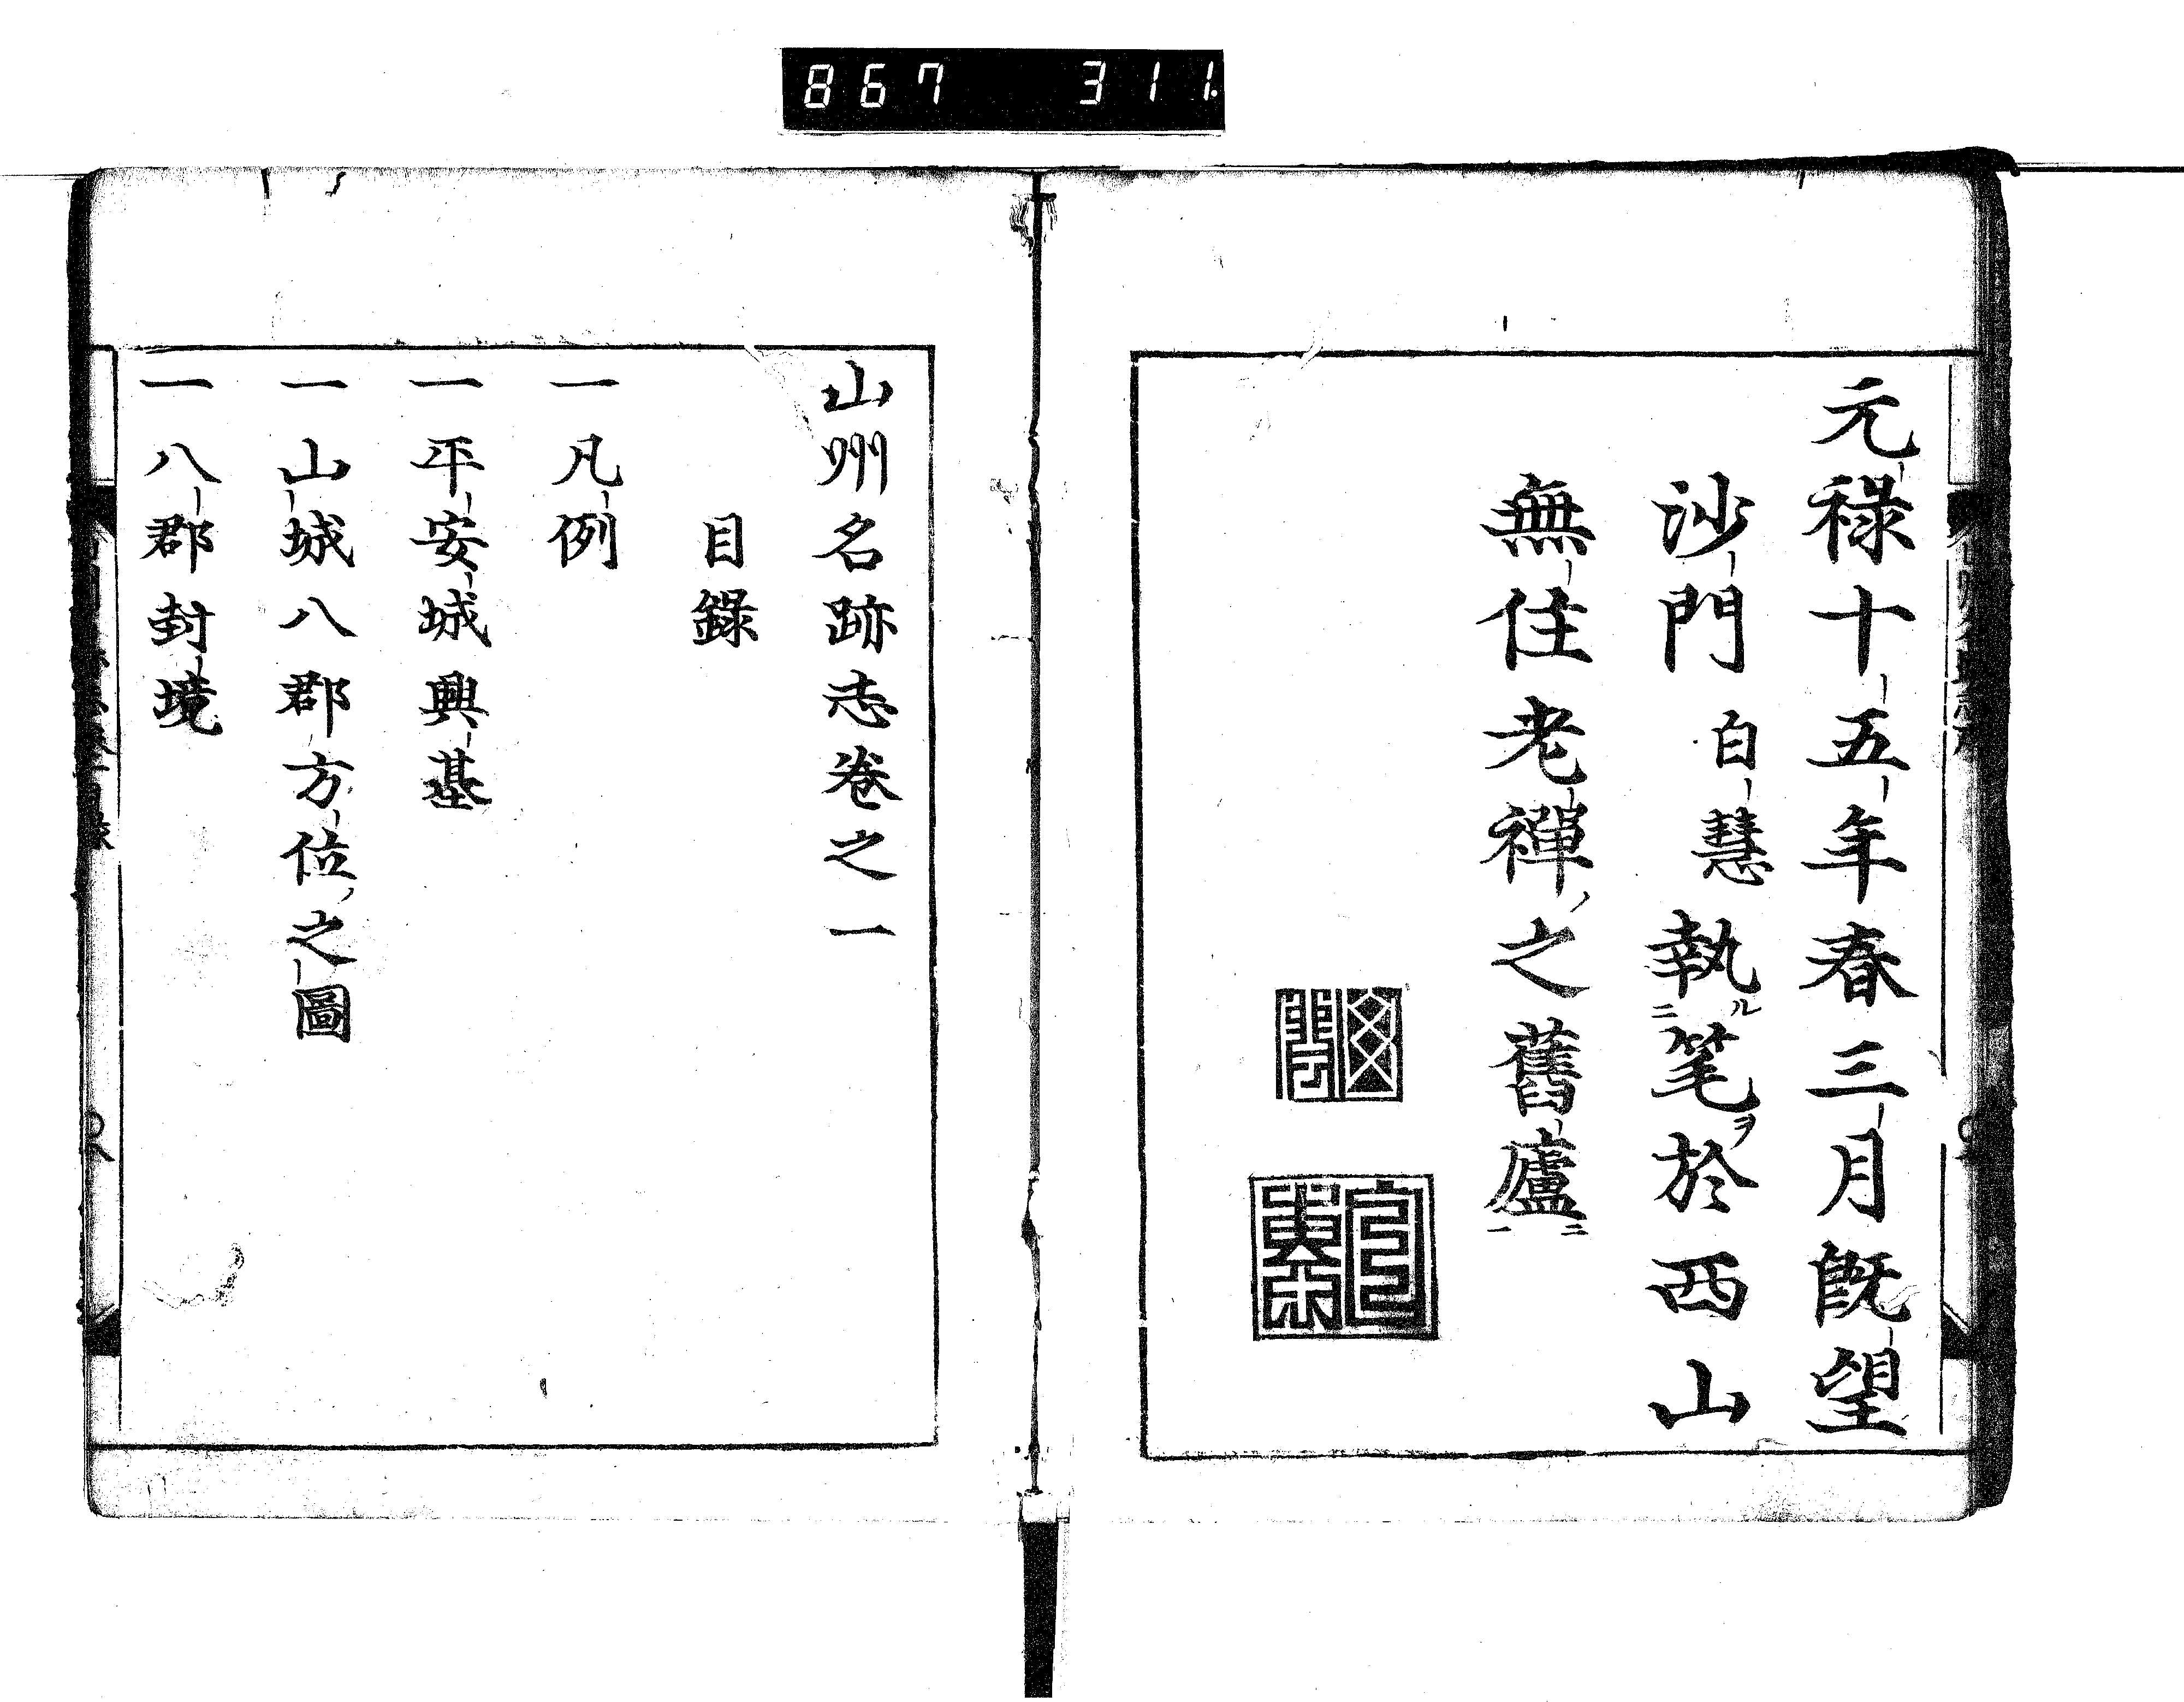 867 311.
元禄十五年春三月既望
沙門白慧執ル二笔ヲ於西山
無住老禅ノ之舊廬一ニ
山州名跡志卷之一
目錄
一凡例
一平安城興基
一山城八郡方位ノ之圖
一八郡封境